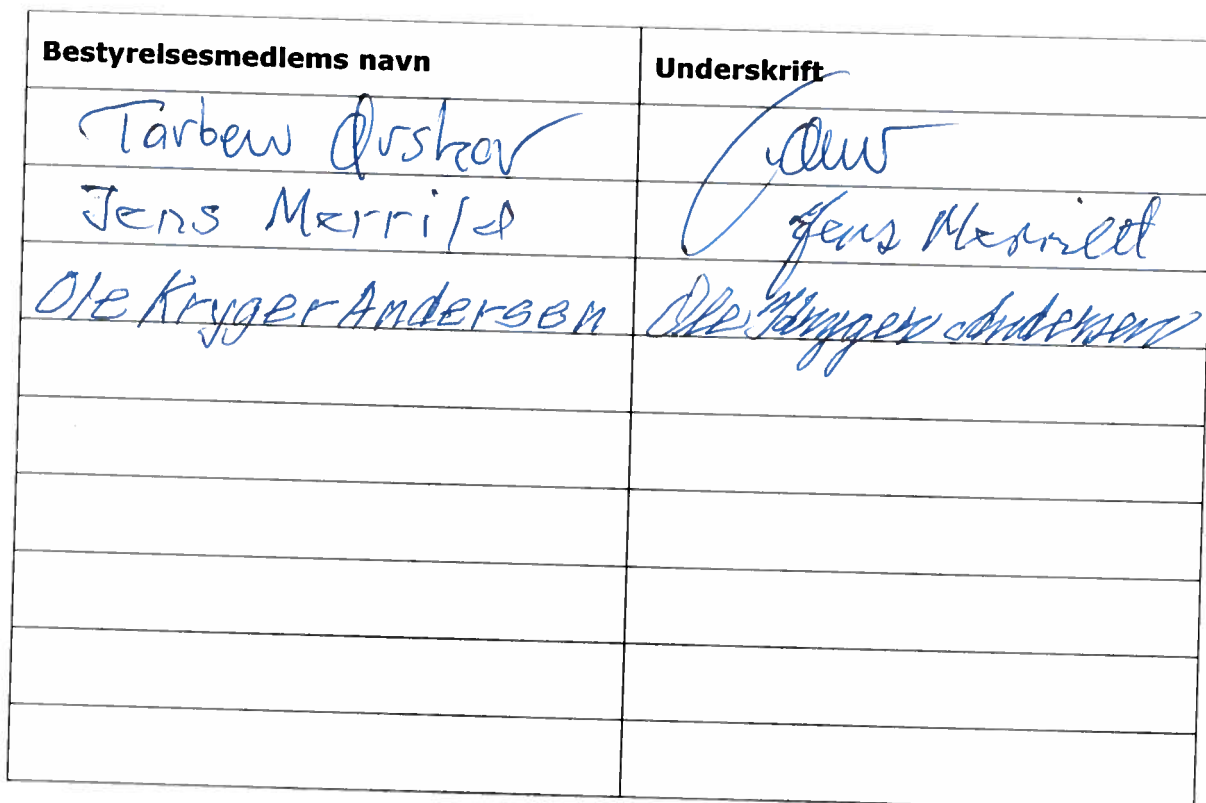 Bestyrelsesmedlems navn Underskrift
Torben Ørskov
Jens Merrild Jens Merrild
Ole Kryger Andersen Ole Kryger Andersen